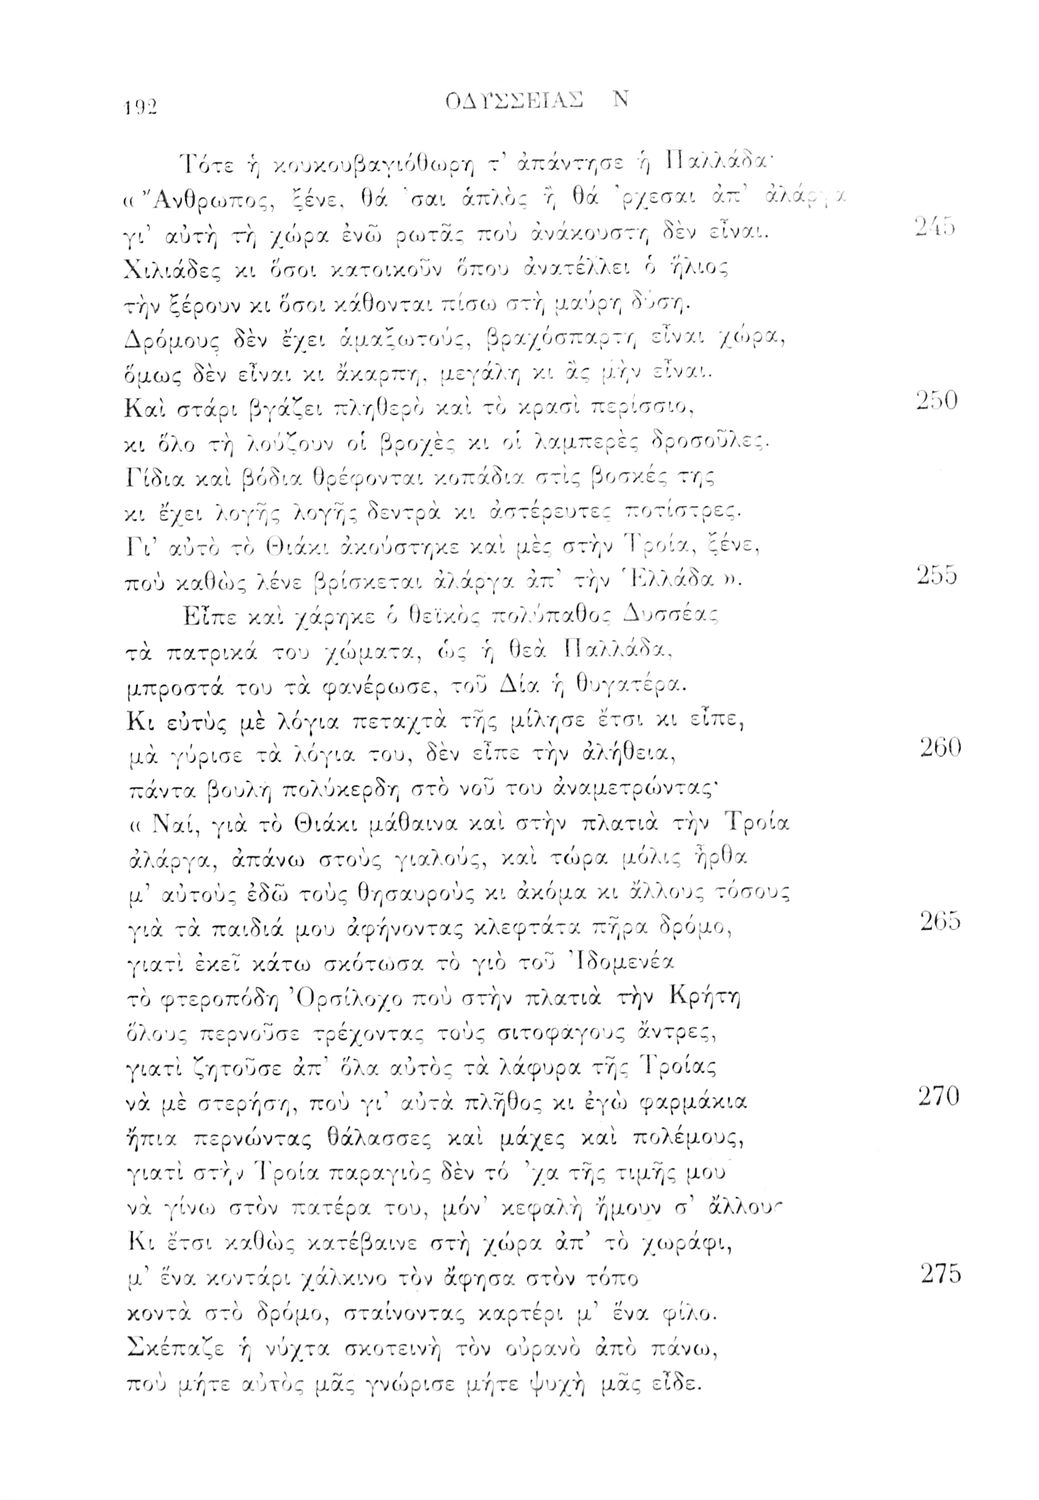 192 ΟΔΥΣΣΕΙΑΣ Ν
Τότε ἡ κουκουβαγιόθωρη τ' ἀπάντησε ἡ Παλλάδα·
« Ἄνθρωπος, ξένε, θά 'σαι ἁπλὸς ἢ θά 'ρχεσαι ἀπ' ἀλάργα
γι' αὐτὴ τὴ χώρα ἐνῶ ρωτᾶς ποὺ ἀνάκουστη δὲν εἶναι. 245
Χιλιάδες κι ὅσοι κατοικοῦν ὅπου ἀνατέλλει ὁ ἥλιος
τὴν ξέρουν κι ὅσοι κάθονται πίσω στὴ μαύρη δύση.
Δρόμους δὲν ἔχει ἁμαξωτούς, βραχόσπαρτη εἶναι χώρα,
ὅμως δὲν εἶναι κι ἄκαρπη, μεγάλη κι ἂς μὴν εἶναι.
Καὶ στάρι βγάζει πληθερὸ καὶ τὸ κρασὶ περίσσιο, 250
κι ὅλο τὴ λούζουν οἱ βροχὲς κι οἱ λαμπερὲς δροσοῦλες.
Γίδια καὶ βόδια θρέφονται κοπάδια στὶς βοσκές της
κι ἔχει λογῆς λογῆς δεντρὰ κι ἀστέρευτες ποτίστρες.
Γι' αὐτὸ τὸ Θιάκι ἀκούστηκε καὶ μὲς στὴν Τροία, ξένε,
ποὺ καθὼς λένε βρίσκεται ἀλάργα ἀπ' τὴν Ἑλλάδα ». 255
Εἶπε καὶ χάρηκε ὁ θεϊκὸς πολύπαθος Δυσσέας
τὰ πατρικά του χώματα, ὡς ἡ θεὰ Παλλάδα,
μπροστά του τὰ φανέρωσε, τοῦ Δία ἡ θυγατέρα.
Κι εὐτὺς μὲ λόγια πεταχτὰ τῆς μίλησε ἔτσι κι εἶπε,
μὰ γύρισε τὰ λόγια του, δὲν εἶπε τὴν ἀλήθεια, 260
πάντα βουλὴ πολύκερδη στὸ νοῦ του ἀναμετρώντας·
« Ναί, γιὰ τὸ Θιάκι μάθαινα καὶ στὴν πλατιὰ τὴν Τροία
ἀλάργα, ἀπάνω στοὺς γιαλούς, καὶ τώρα μόλις ἦρθα
μ' αὐτοὺς ἐδῶ τοὺς θησαυροὺς κι ἀκόμα κι ἄλλους τόσους
γιὰ τὰ παιδιά μου ἀφήνοντας κλεφτάτα πῆρα δρόμο, 265
γιατὶ ἐκεῖ κάτω σκότωσα τὸ γιὸ τοῦ Ἰδομενέα
τὸ φτεροπόδη Ὀρσίλοχο ποὺ στὴν πλατιὰ τὴν Κρήτη
ὅλους περνοῦσε τρέχοντας τοὺς σιτοφάγους ἄντρες,
γιατὶ ζητοῦσε ἀπ' ὅλα αὐτὸς τὰ λάφυρα τῆς Τροίας
νὰ μὲ στερήση, ποὺ γι' αὐτὰ πλῆθος κι ἐγὼ φαρμάκια 270
ἤπια περνώντας θάλασσες καὶ μάχες καὶ πολέμους,
γιατὶ στὴν Τροία παραγιὸς δὲν τό 'χα τῆς τιμῆς μου
νὰ γίνω στὸν πατέρα του, μόν' κεφαλὴ ἤμουν σ' ἄλλους
Κι ἔτσι καθὼς κατέβαινε στὴ χώρα ἀπ' τὸ χωράφι,
μ' ἕνα κοντάρι χάλκινο τὸν ἄφησα στὸν τόπο 275
κοντὰ στὸ δρόμο, σταίνοντας καρτέρι μ' ἕνα φίλο.
Σκέπαζε ἡ νύχτα σκοτεινὴ τὸν οὐρανὸ ἀπὸ πάνω,
ποὺ μήτε αὐτὸς μᾶς γνώρισε μήτε ψυχὴ μᾶς εἶδε.